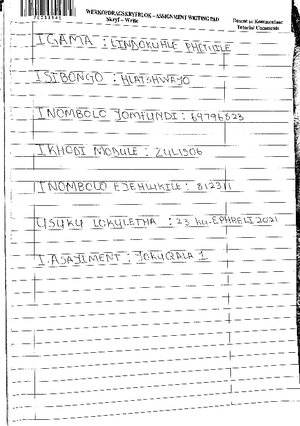 WERKOPDRAGSKRYFBLOK – ASSIGNMENT WRITING PAD
Skryf – Write
Dosent se Kommentaar
Tutorial Comments
IGAMA : LINDOKUHLE PHETHILE
ISIBONGO : HLATSHWAYO
INOMBOLO YOMFUNDI : 69796823
IKHODI MODULE : ZUL1506
INOMBOLO EJEHLUKILE : 812311
USUKU LOKULETHA : 23 ku-EPHRELI 2021
I. ASAYIMENT : YOKUQALA 1